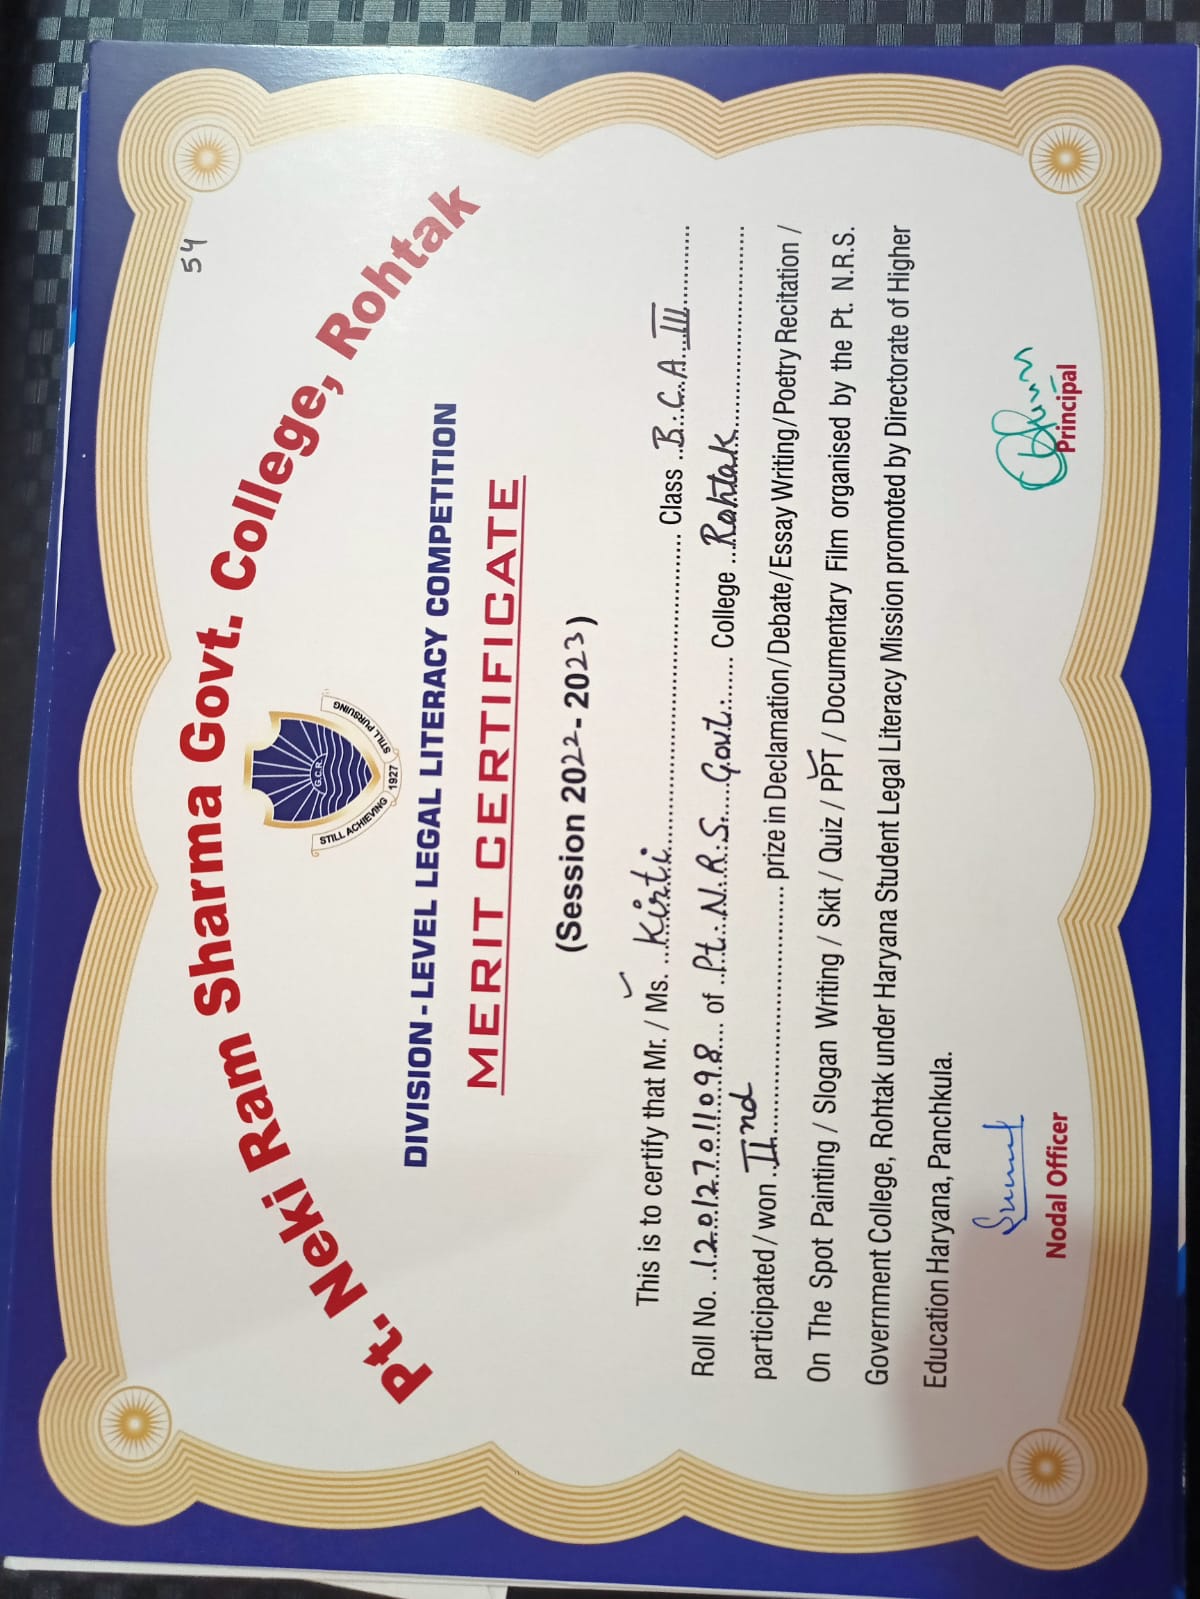 54
Pt. Neki Ram Sharma Govt. College, Rohtak
G.C.R.
STILL ACHIEVING 1927 STILL PURSUING
DIVISION - LEVEL LEGAL LITERACY COMPETITION
MERIT CERTIFICATE
(Session 2022 - 2023)
This is to certify that Mr. / Ms. Kirti Class B.C.A III
Roll No. 120127011098 of Pt. N.R.S. Govt. College Rohtak
participated / won IInd prize in Declamation / Debate / Essay Writing / Poetry Recitation /
On The Spot Painting / Slogan Writing / Skit / Quiz / PPT / Documentary Film organised by the Pt. N.R.S.
Government College, Rohtak under Haryana Student Legal Literacy Mission promoted by Directorate of Higher
Education Haryana, Panchkula.
Nodal Officer
Principal